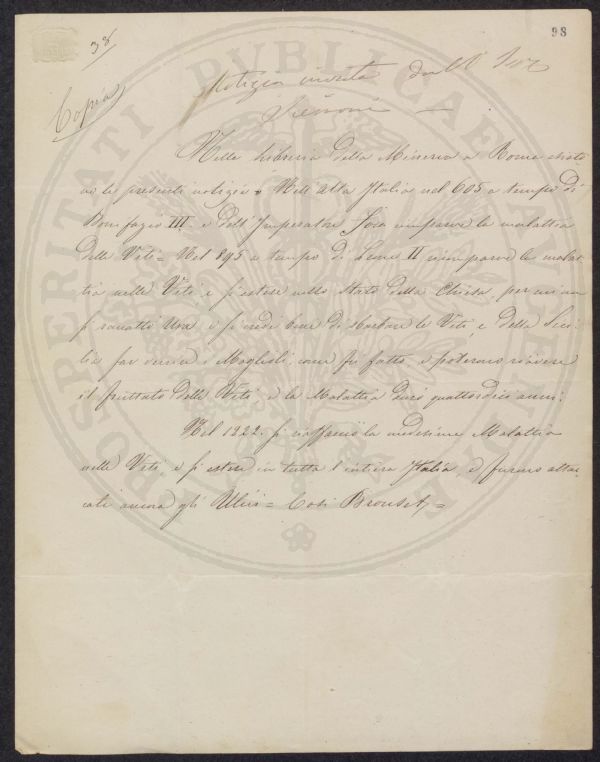 38
98
Copia
Notizia inviata dall'
Nella Libreria della Minerva a Roma
vi le presenti notizie = Nell'alta Italia nel 605 a tempo di
Bonifazio III e dell'Imperatore Foca comparve la malattia
delle Viti = Nel 895 a tempo di Leone II ricomparve la malat
tia nelle Viti, e si estese nello Stato della Chiesa, per cui non
si raccolse Uva, e si credé bene di le Viti, e della Sici
lia far venire i Maglioli, come fu fatto, e poterono riavere
il fruttato delle Viti, e la Malattia durò quattordici anni.
Nel 1222. si riaffacciò la medesima Malattia
nelle Viti, e si estese in tutta l'intiera Italia, e furono attac
cati ancora gli Ulivi = Così
PROSPERITATI PVBLICAE